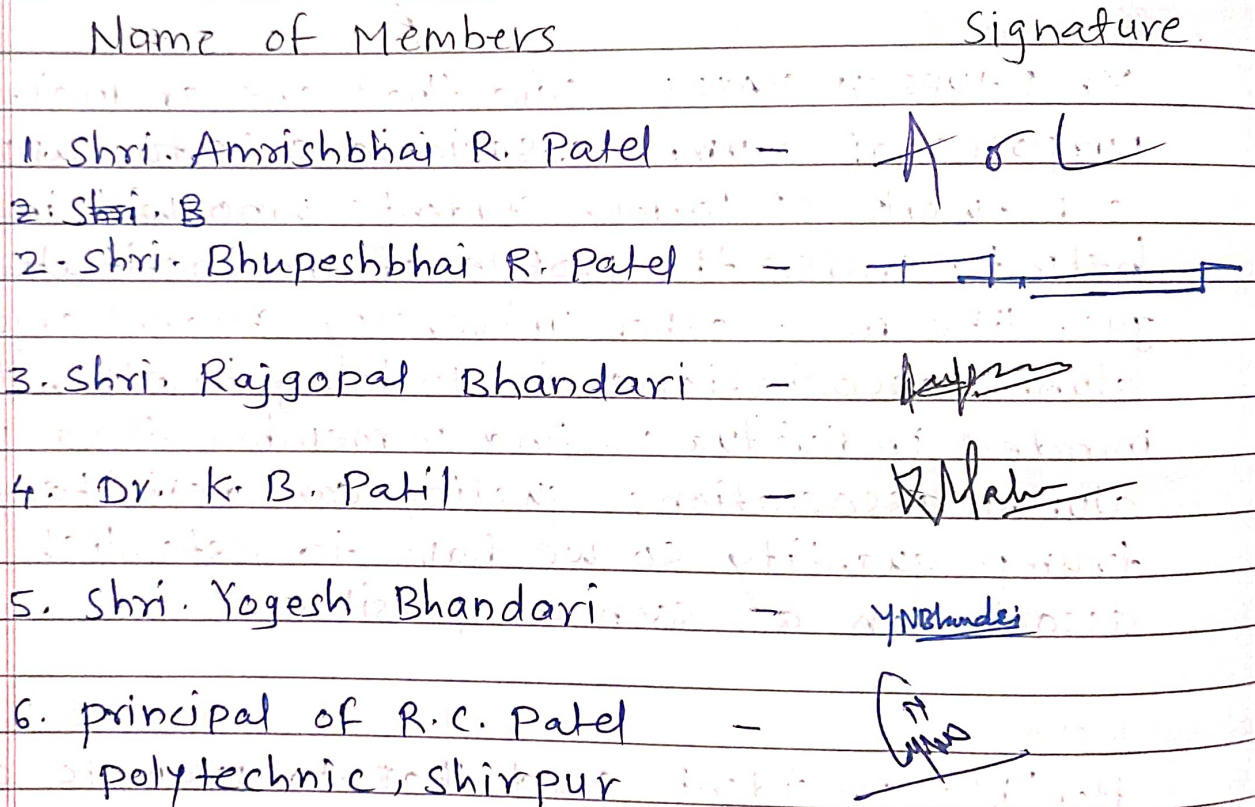 Name of Members Signature
1. Shri. Amrishbhai R. Patel. -
2. Shri. B
2. Shri. Bhupeshbhai R. Patel. -
3. Shri. Rajgopal Bhandari -
4. Dr. K. B. Patil -
5. Shri. Yogesh Bhandari. - Y.N.Bhandari
6. principal of R.C. Patel -
polytechnic, Shirpur